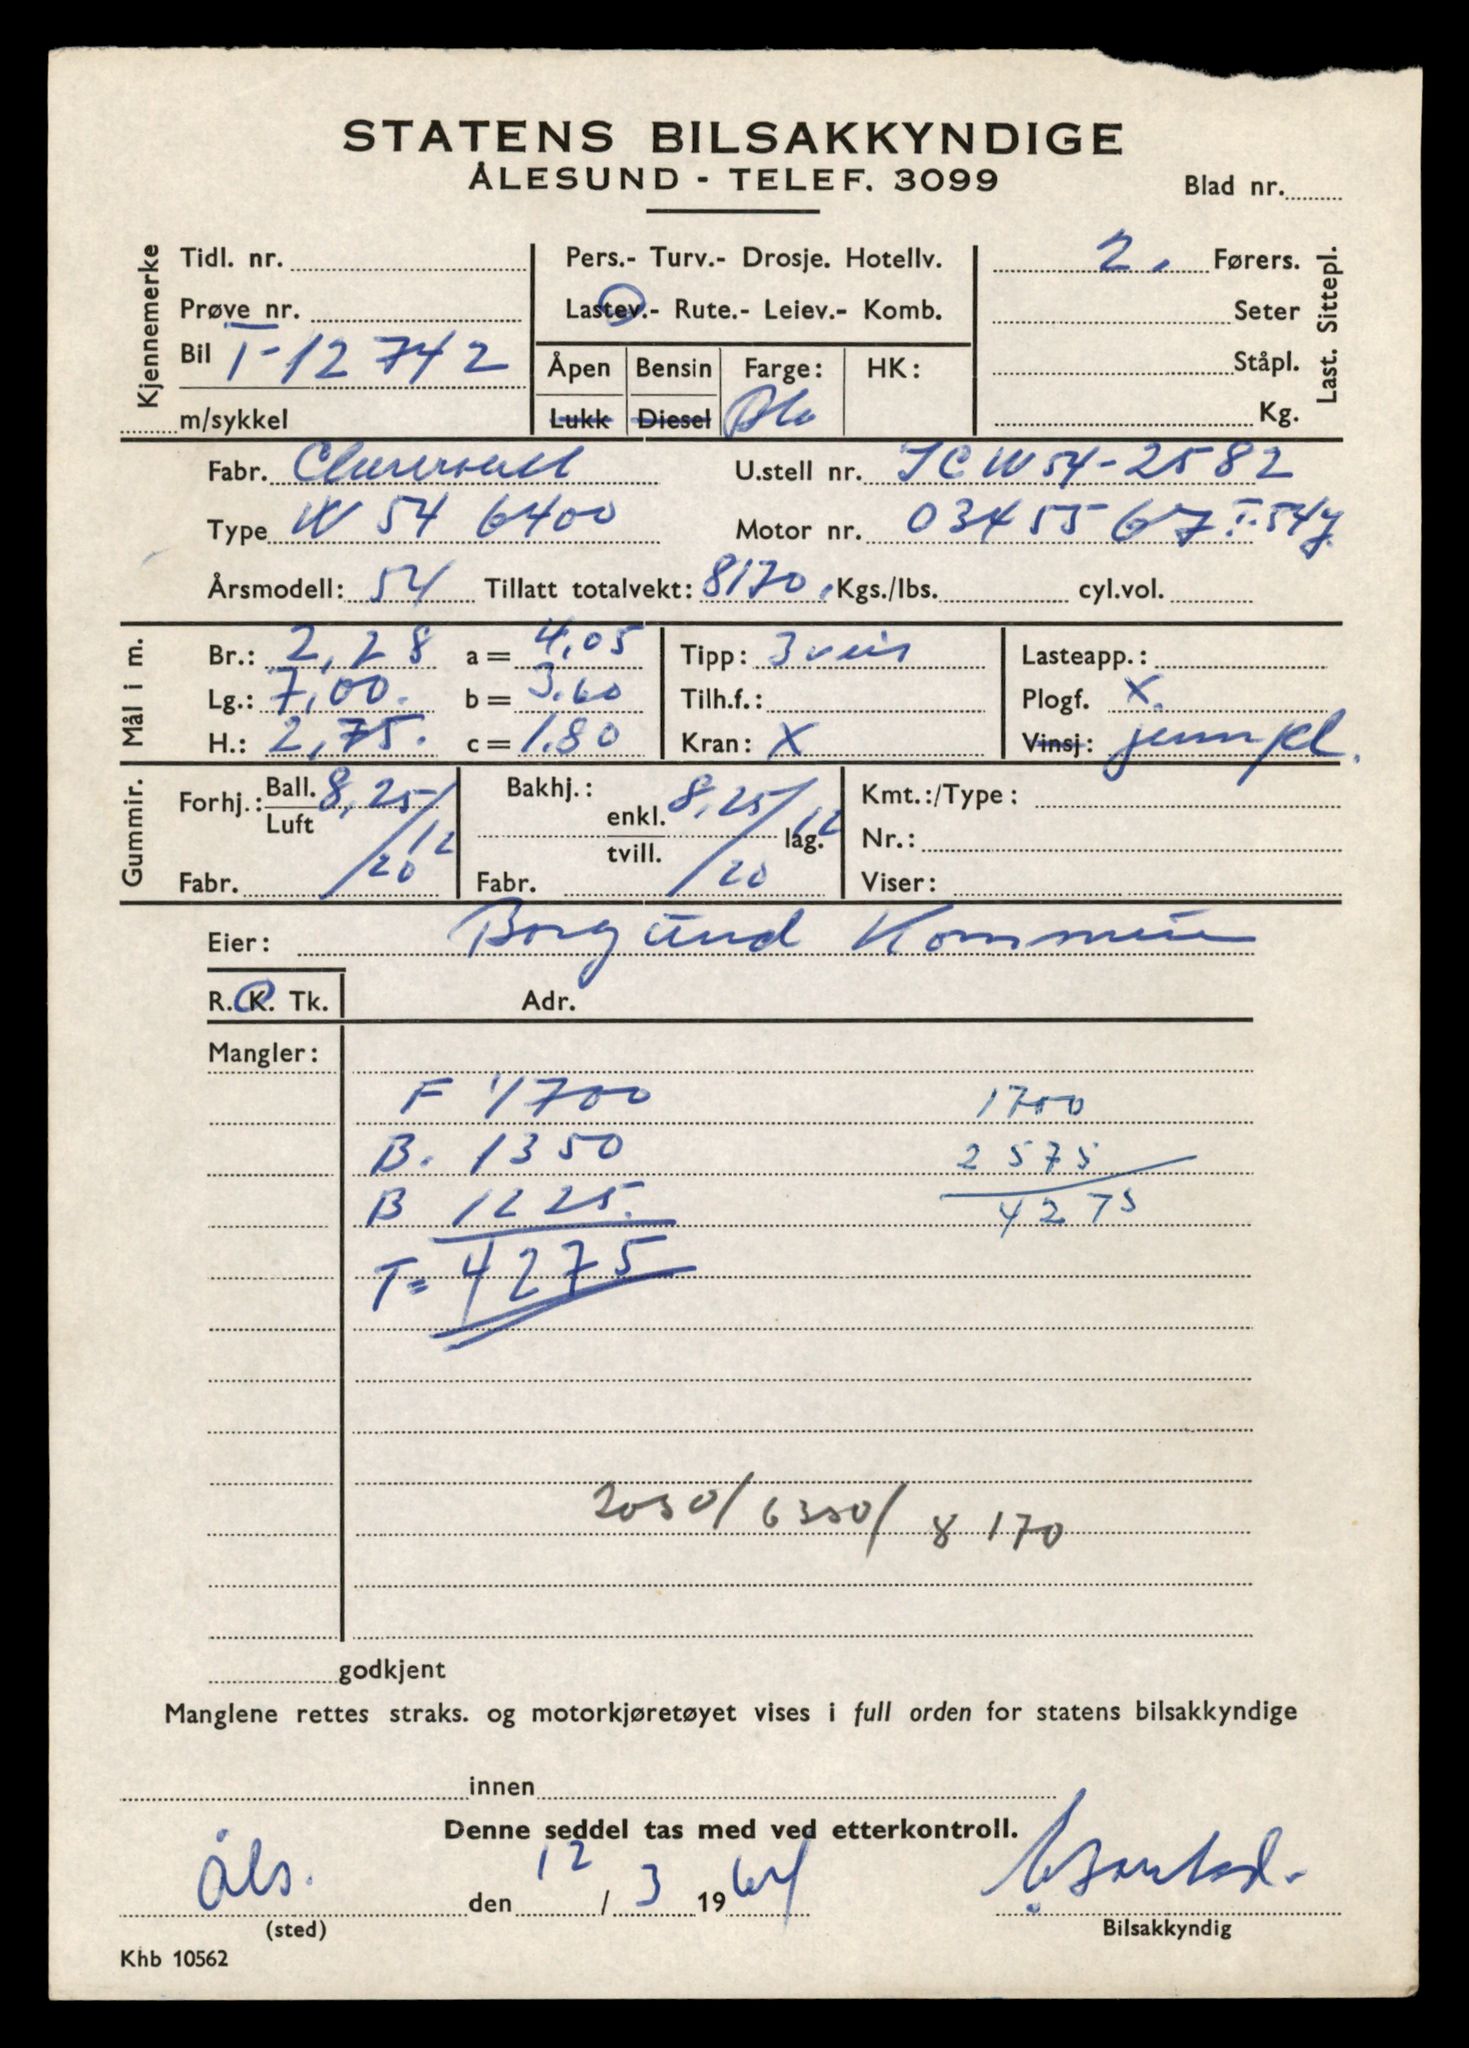 STATENS BILSAKKYNDIGE
ÅLESUND - TELEF. 3099
Blad nr.
Kjennemerke
Tidl. nr.
Prøve nr.
Bil T-12742
m/sykkel
Pers.- Turv.- Drosje. Hotellv.
Lastev.- Rute.- Leiev.- Komb.
Åpen Bensin Farge: HK:
Lukk Diesel Blå
2. Førers.
Seter
Ståpl.
Kg.
Last. Sittepl.
Fabr. Chevrolet U.stell nr. JCW54-2582
Type W 54 6400 Motor nr. 0345567 T.54y
Årsmodell: 54 Tillatt totalvekt: 8170. Kgs./lbs. cyl.vol.
Mål i m.
Br.: 2,28 a = 4,05 Tipp: 3 veis Lasteapp.:
Lg.: 7,00. b = 3.60 Tilh.f.: Plogf. X.
H.: 2,75. c = 1.80 Kran: X Vinsj:
Gummir.
Forhj.: Ball. 8,25/20 12
Luft
Fabr.
Bakhj.: enkl. 8,25/20 12 lag.
tvill.
Fabr.
Kmt.:/Type:
Nr.:
Viser:
Eier: Borgund Kommune
R. K. Tk. Adr.
Mangler:
F 1700 1700
B. 1350 2575
B 1225. 4275
T= 4275
2050/6350/8170
godkjent
Manglene rettes straks. og motorkjøretøyet vises i full orden for statens bilsakkyndige
innen
Denne seddel tas med ved etterkontroll.
Åls. den 12 / 3 1964
(sted) Bilsakkyndig
Khb 10562